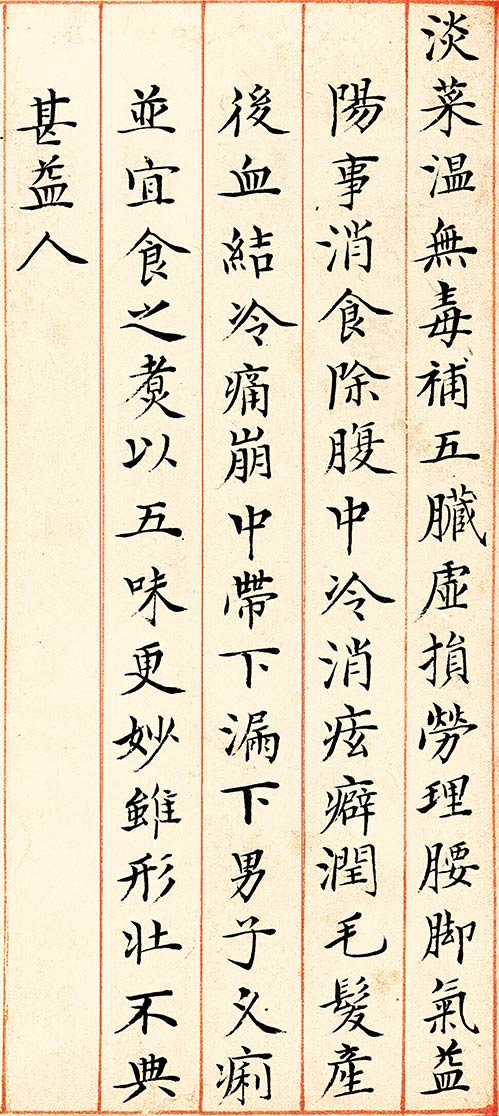 淡菜温無毒補五臟虛損勞理腰脚氣益
陽事消食除腹中冷消痃癖潤毛髮產
後血結冷痛崩中帶下漏下男子久痢
並宜食之煑以五味更妙雖形壯不典
甚益人